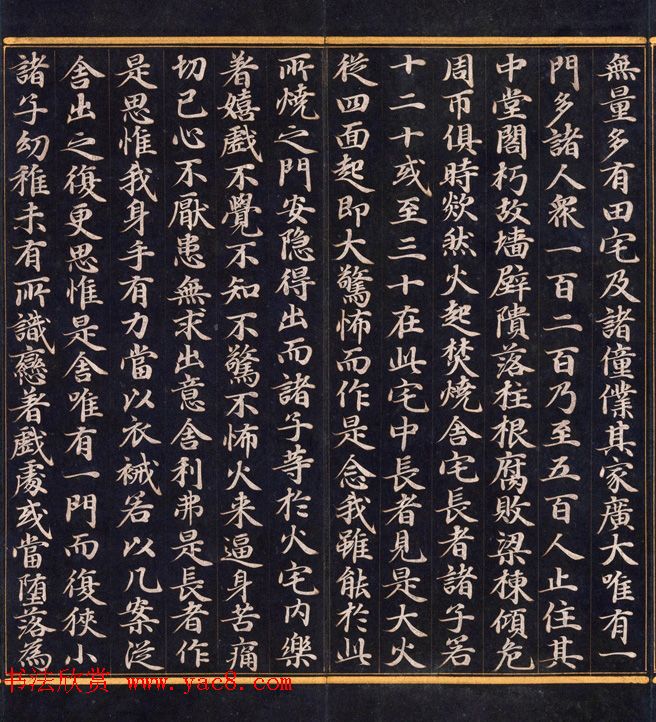 無量多有田宅及諸僮僕其家廣大唯有一
門多諸人衆一百二百乃至五百人止住其
中堂閣朽故墻壁隤落柱根腐敗梁棟傾危
周帀俱時欻然火起焚燒舍宅長者諸子若
十二十或至三十在此宅中長者見是大火
從四面起即大驚怖而作是念我雖能於此
所燒之門安隐得出而諸子等於火宅内樂
著嬉戲不覺不知不驚不怖火来逼身苦痛
切已心不厭患無求出意舍利弗是長者作
是思惟我身手有力當以衣裓若以几案從
舍出之復更思惟是舍唯有一門而復狹小
諸子幼稚未有所識戀著戲處或當堕落為
书法欣赏 www.yac8.com